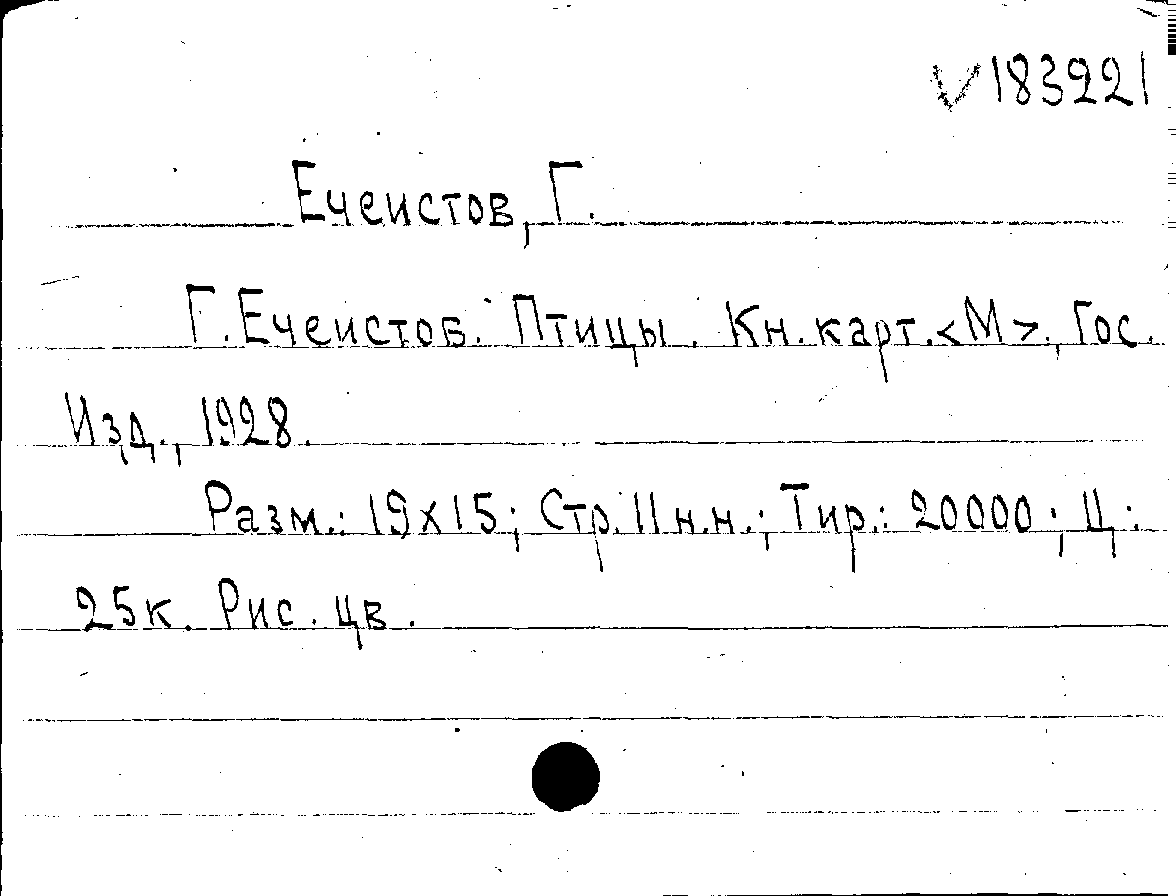 V 183221
Ечеистов, Г.
Г. Ечеистов. Птицы. Кн. карт. <М>., Гос.
Изд., 1928.
Разм.: 19х15; Стр. 11 н.н.; Тир.: 20000; Ц.:
25к. Рис. цв.